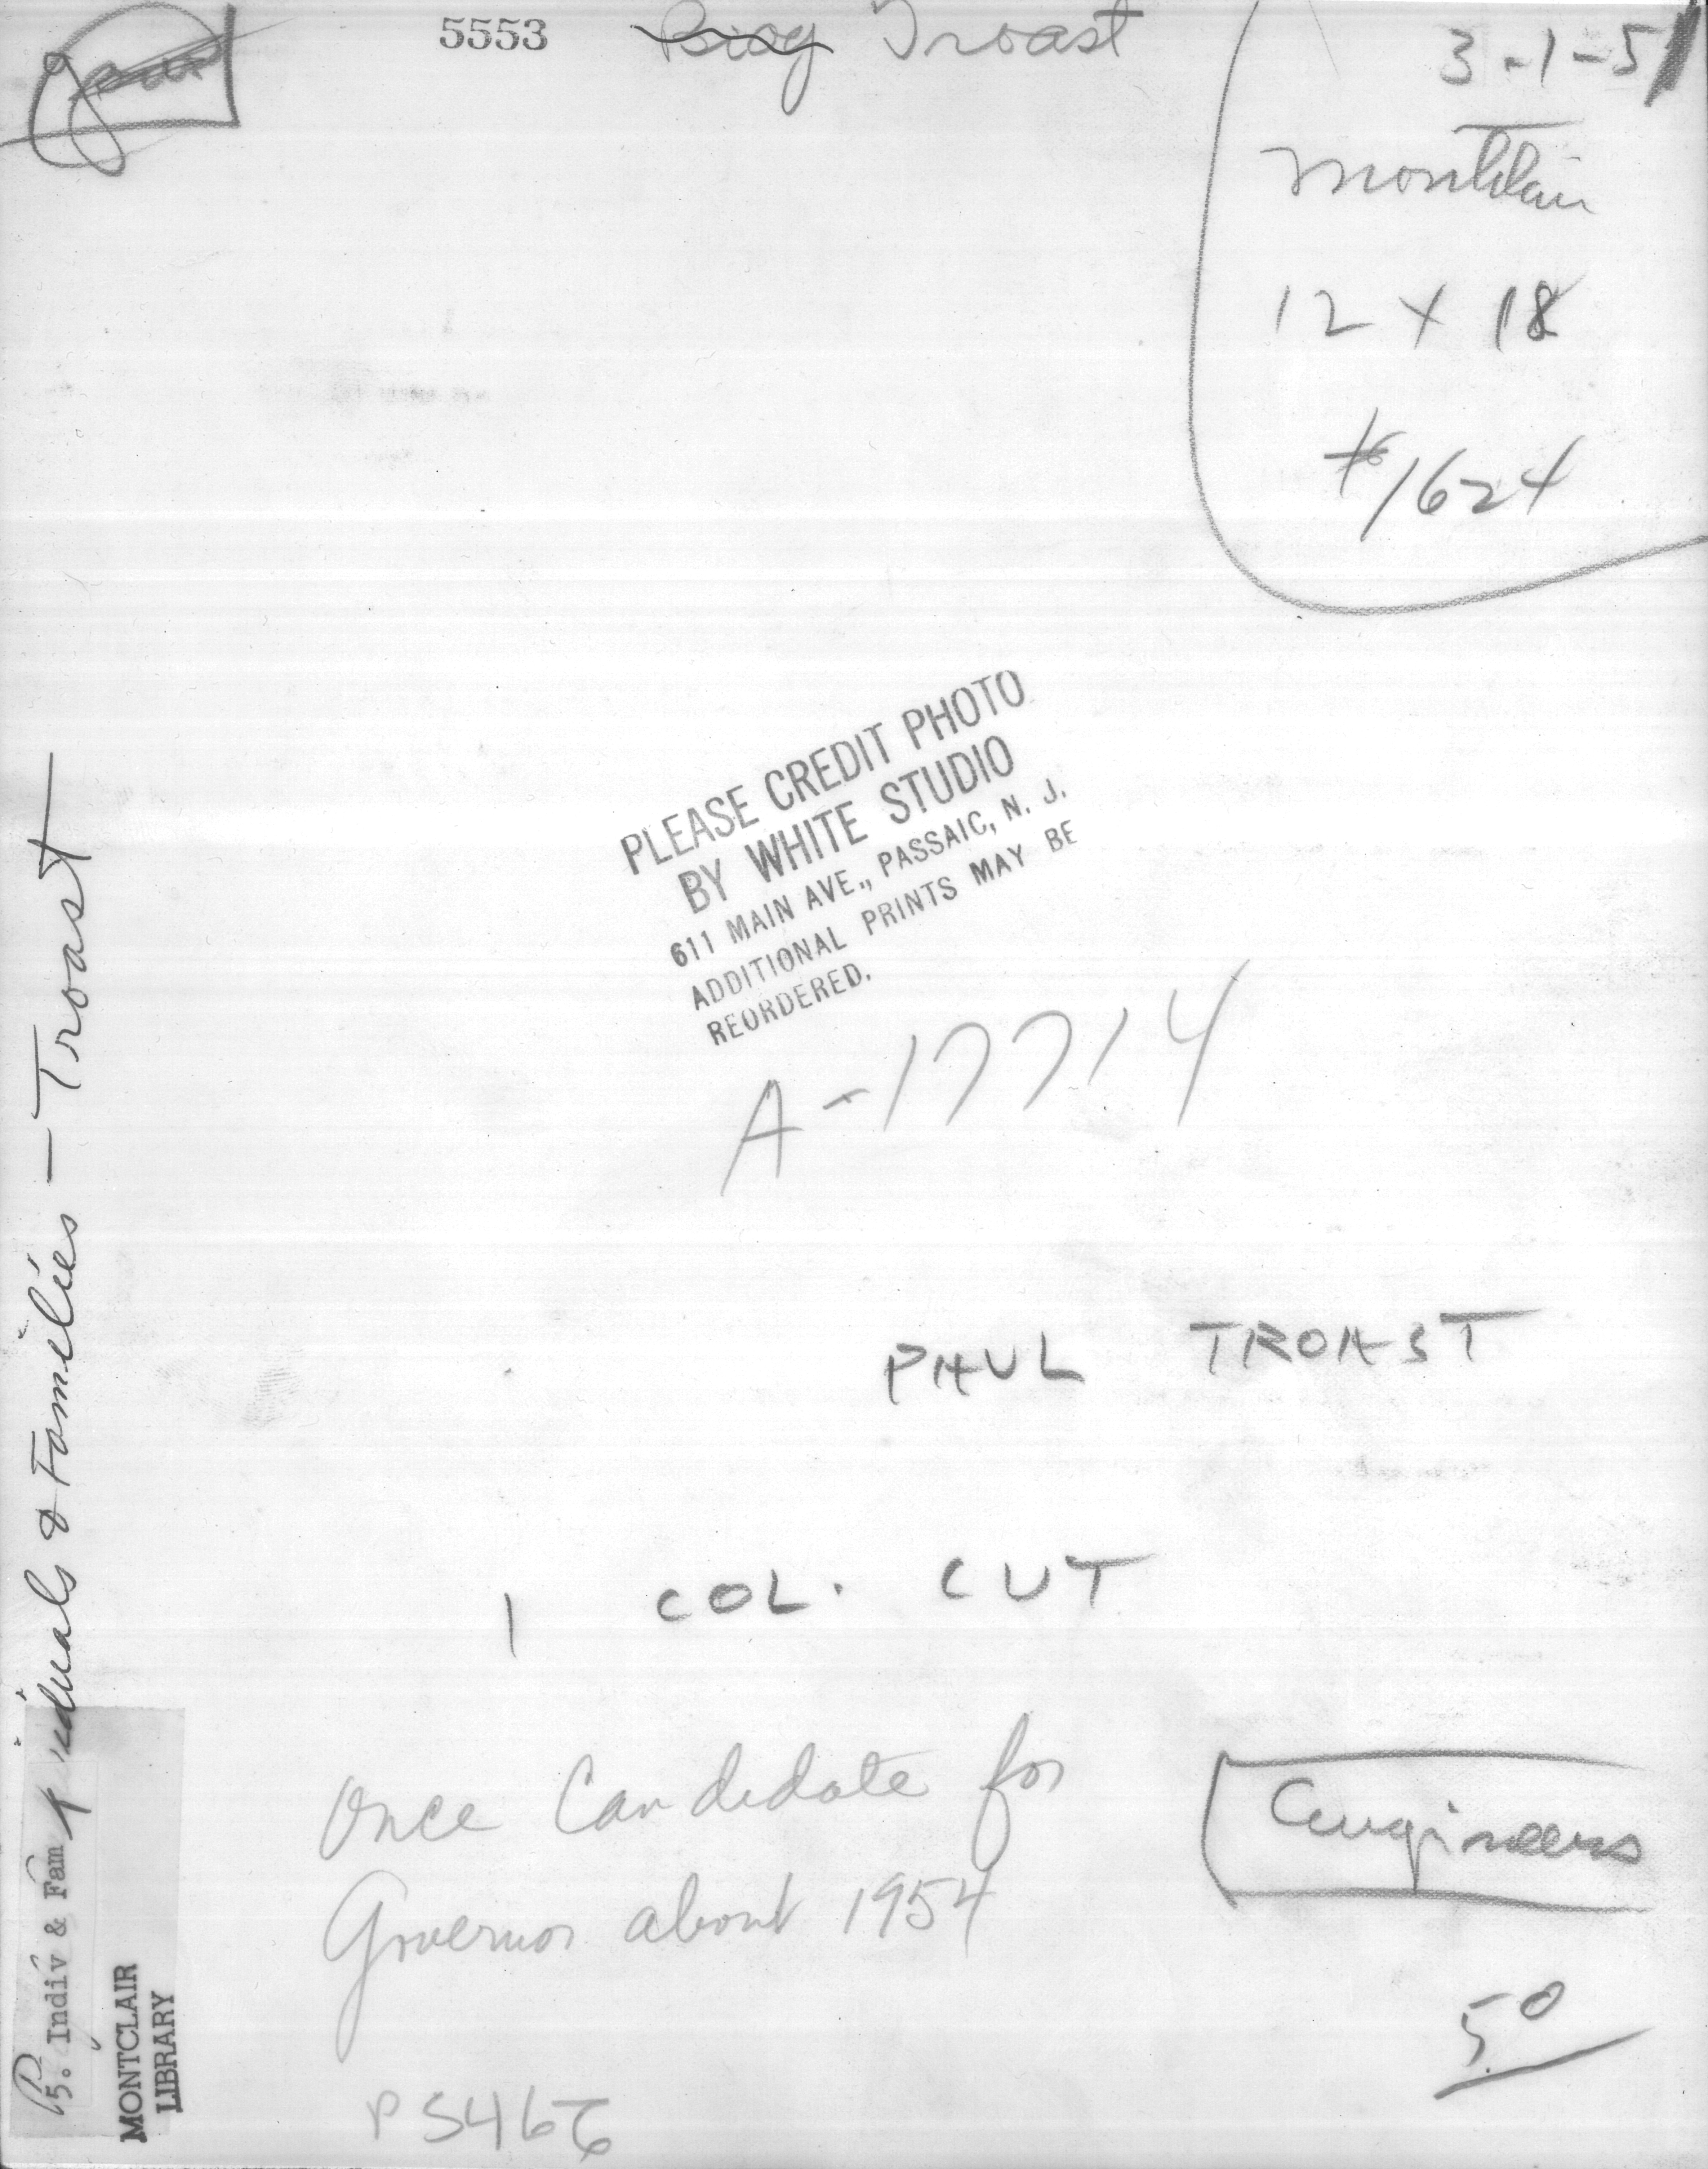 5553
Biog Troast
3-1-51
Montclair
12 X 18
#1624
PLEASE CREDIT PHOTO
BY WHITE STUDIO
611 MAIN AVE., PASSAIC, N. J.
ADDITIONAL PRINTS MAY BE
REORDERED.
A-17714
PAUL TROAST
1 COL. CUT
Once Candidate for
Governor about 1954
Engineers
50
P5466
iduals & Families - Troast
P5. Indiv & Fam
MONTCLAIR
LIBRARY